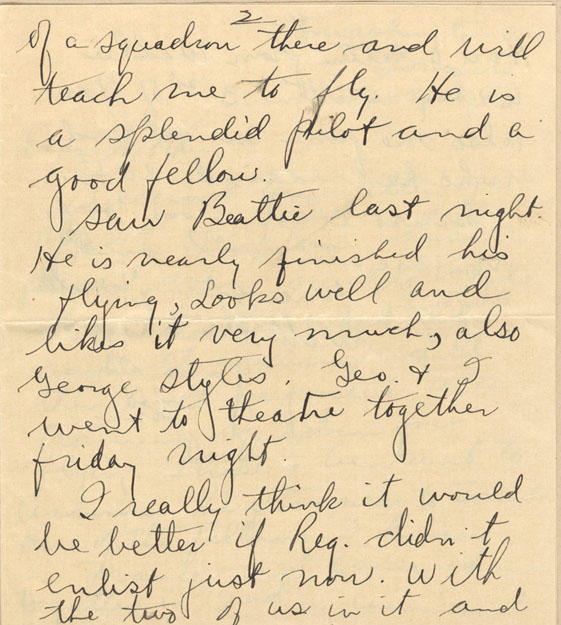 2
of a squadron there and will
teach me to fly. He is
a splendid pilot and a
good fellow.
Saw Beattie last night.
He is nearly finished his
flying, Looks well and
likes it very much, also
George Styles. Geo. & I
went to theatre together
friday night.
I really think it would
be better if Reg. didn't
enlist just now. With
the two of us in it and